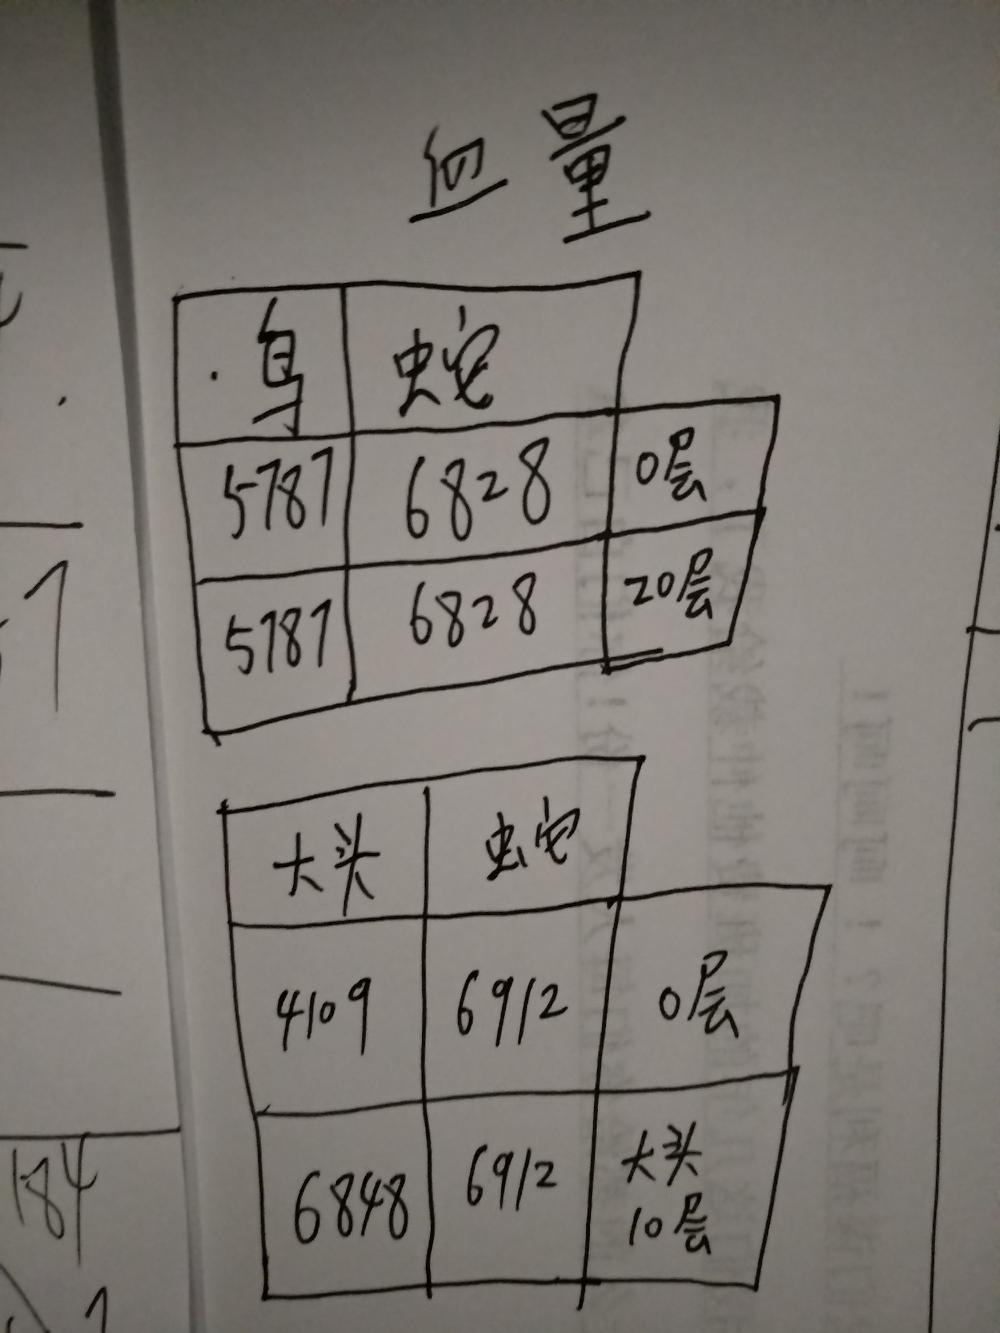 血量
鸟 蛇
5787 6828 0层
5787 6828 20层
大头 蛇
4109 6912 0层
6848 6912 大头
10层
184